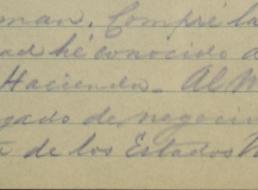 man. Compré la
ad hé conocido a
Hacienda. Al M
gado de negocio
a de los Estados U